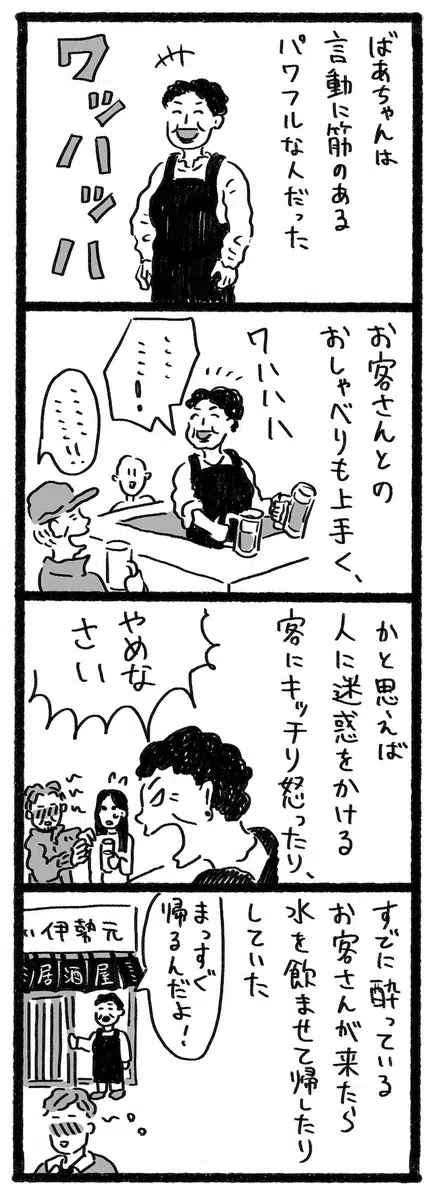 ばあちゃんは
言動に筋のある
パワフルな人だった
ワッハッハ
お客さんとの
おしゃべりも上手く、
ワハハハ
かと思えば
人に迷惑をかける
客にキッチリ怒ったり、
やめな
さい
すでに酔っている
お客さんが来たら
水を飲ませて帰したり
していた
まっすぐ
帰るんだよ！
伊勢元
居酒屋